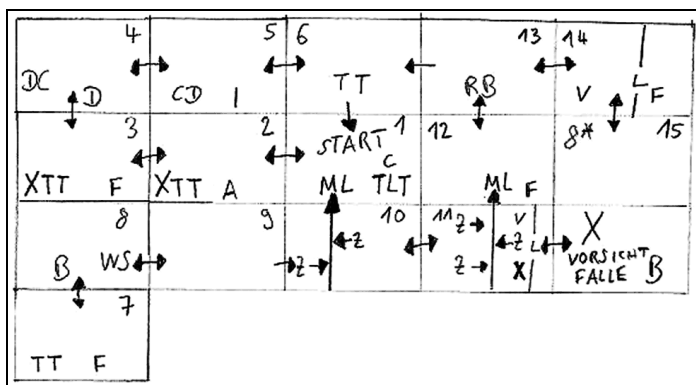 4 5 6 13 14
DC D CD I TT RB V L F
3 2 START 1 12 8* 15
C
XTT F XTT A ML TLT ML F
8 9 10 11 Z V
B WS Z Z Z Z L X
X VORSICHT
FALLE B
7
TT F